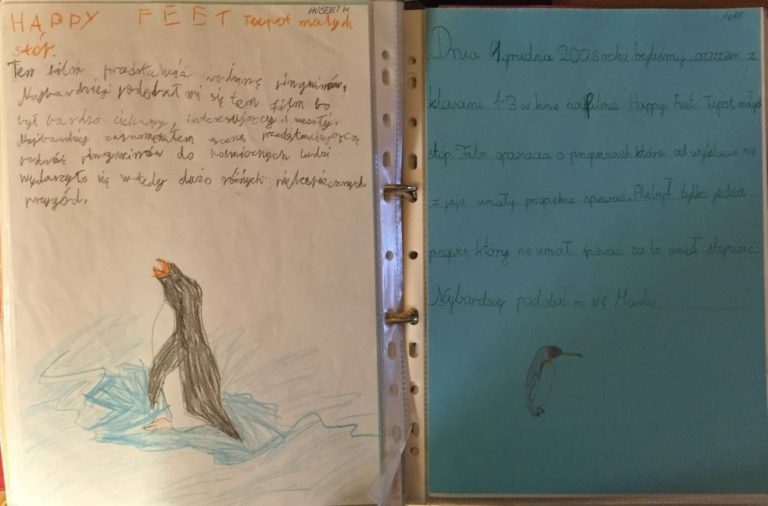 HUBERT W.
HAPPY FEET Tupot małych
stóp.
Ten film przedstawia rodzinę pingwinów.
Najbardziej podobał mi się ten film bo
był bardzo ciekawy, interesujący i wesoły.
Najbardziej zapamiętałem scenę przedstawiającą
podróż pingwinów do kosmicznych ludzi.
Wydarzyło się wtedy dużo różnych niebespiecznych
przygód.
ADAM
Dnia grudnia 2006 roku byliśmy razem z
klasami 1-3 w kinie na filmie Happy Feet Tupot małych
stóp. Film opowiada o pingwinach które od wyklucia się
z jaja umiały przepięknie śpiewać. Ale był tylko jeden
pingwin który nie umiał śpiewać za to umiał stepować.
Najbardziej podobał mi się Mambo.